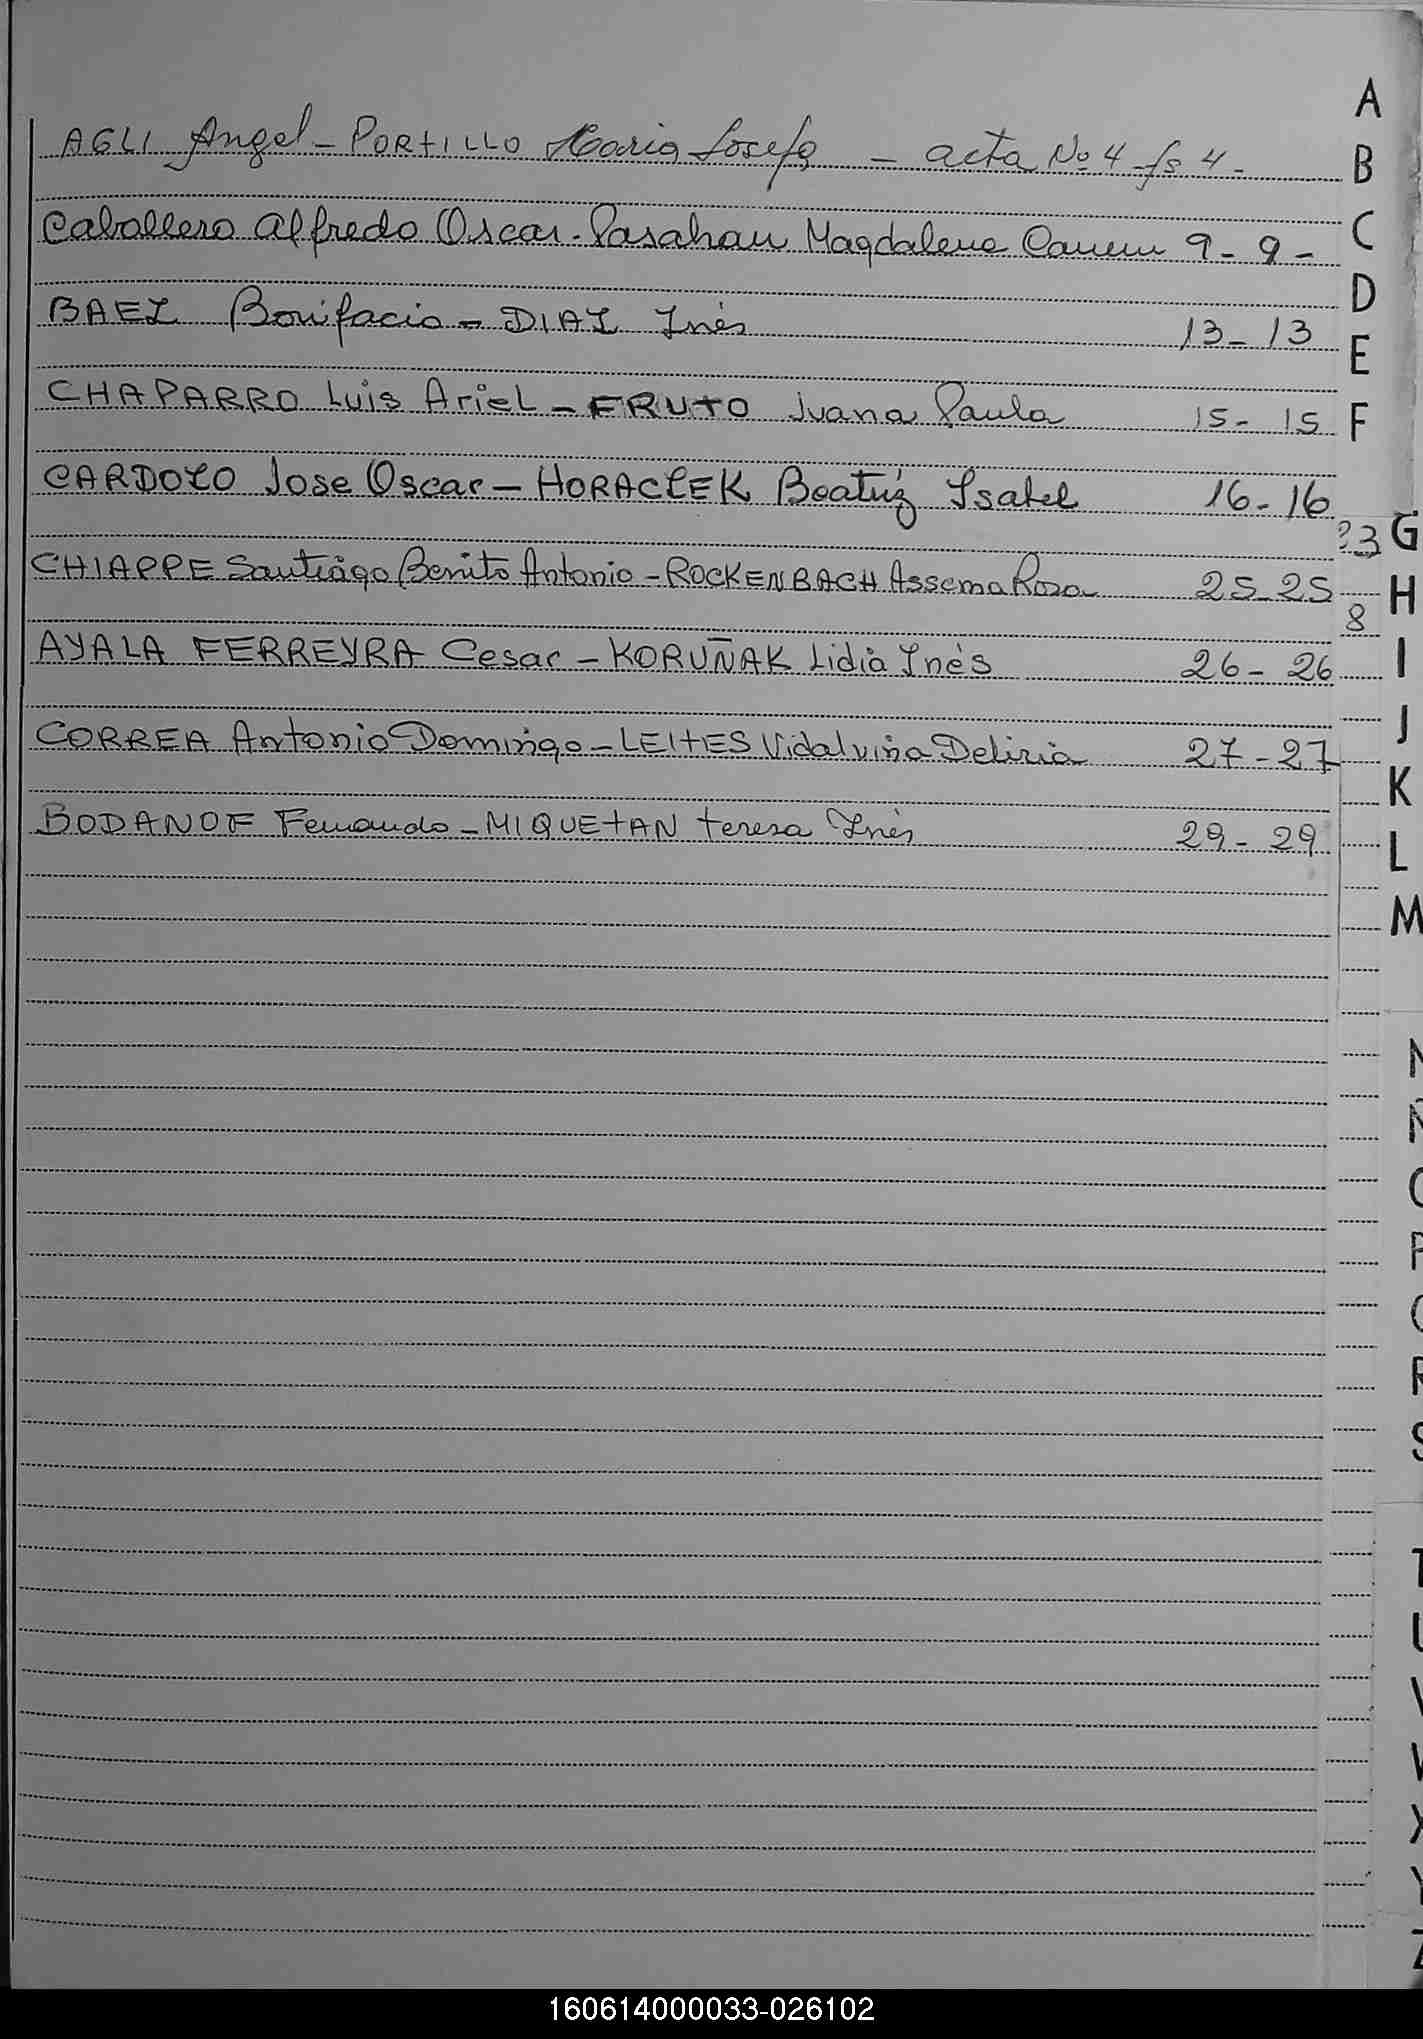 AGLI Angel - PORTILLO Maria Josefa - acta No 4 fs 4 -
Caballero Alfredo Oscar - Pasahan Magdalena Carmen 9 - 9 -
BAEZ Bonifacio - DIAZ Inés 13 - 13
CHAPARRO Luis Ariel - FRUTO Juana Paula 15 - 15
CARDOZO Jose Oscar - HORACEK Beatríz Isabel 16 - 16
CHIAPPE Santiago Benito Antonio - ROCKENBACH Assema Rosa 25 - 25
AYALA FERREYRA Cesar - KORUÑAK Lidia Inés 26 - 26
CORREA Antonio Domingo - LEITES Vidalvina Deliria 27 - 27
BODANOF Fernando - MIQUETAN Teresa Inés 29 - 29
A
B
C
D
E
F
G
H
I
J
K
L
M
23
8
N
Ñ
O
P
Q
R
S
T
U
V
W
X
Y
Z
160614000033-026102